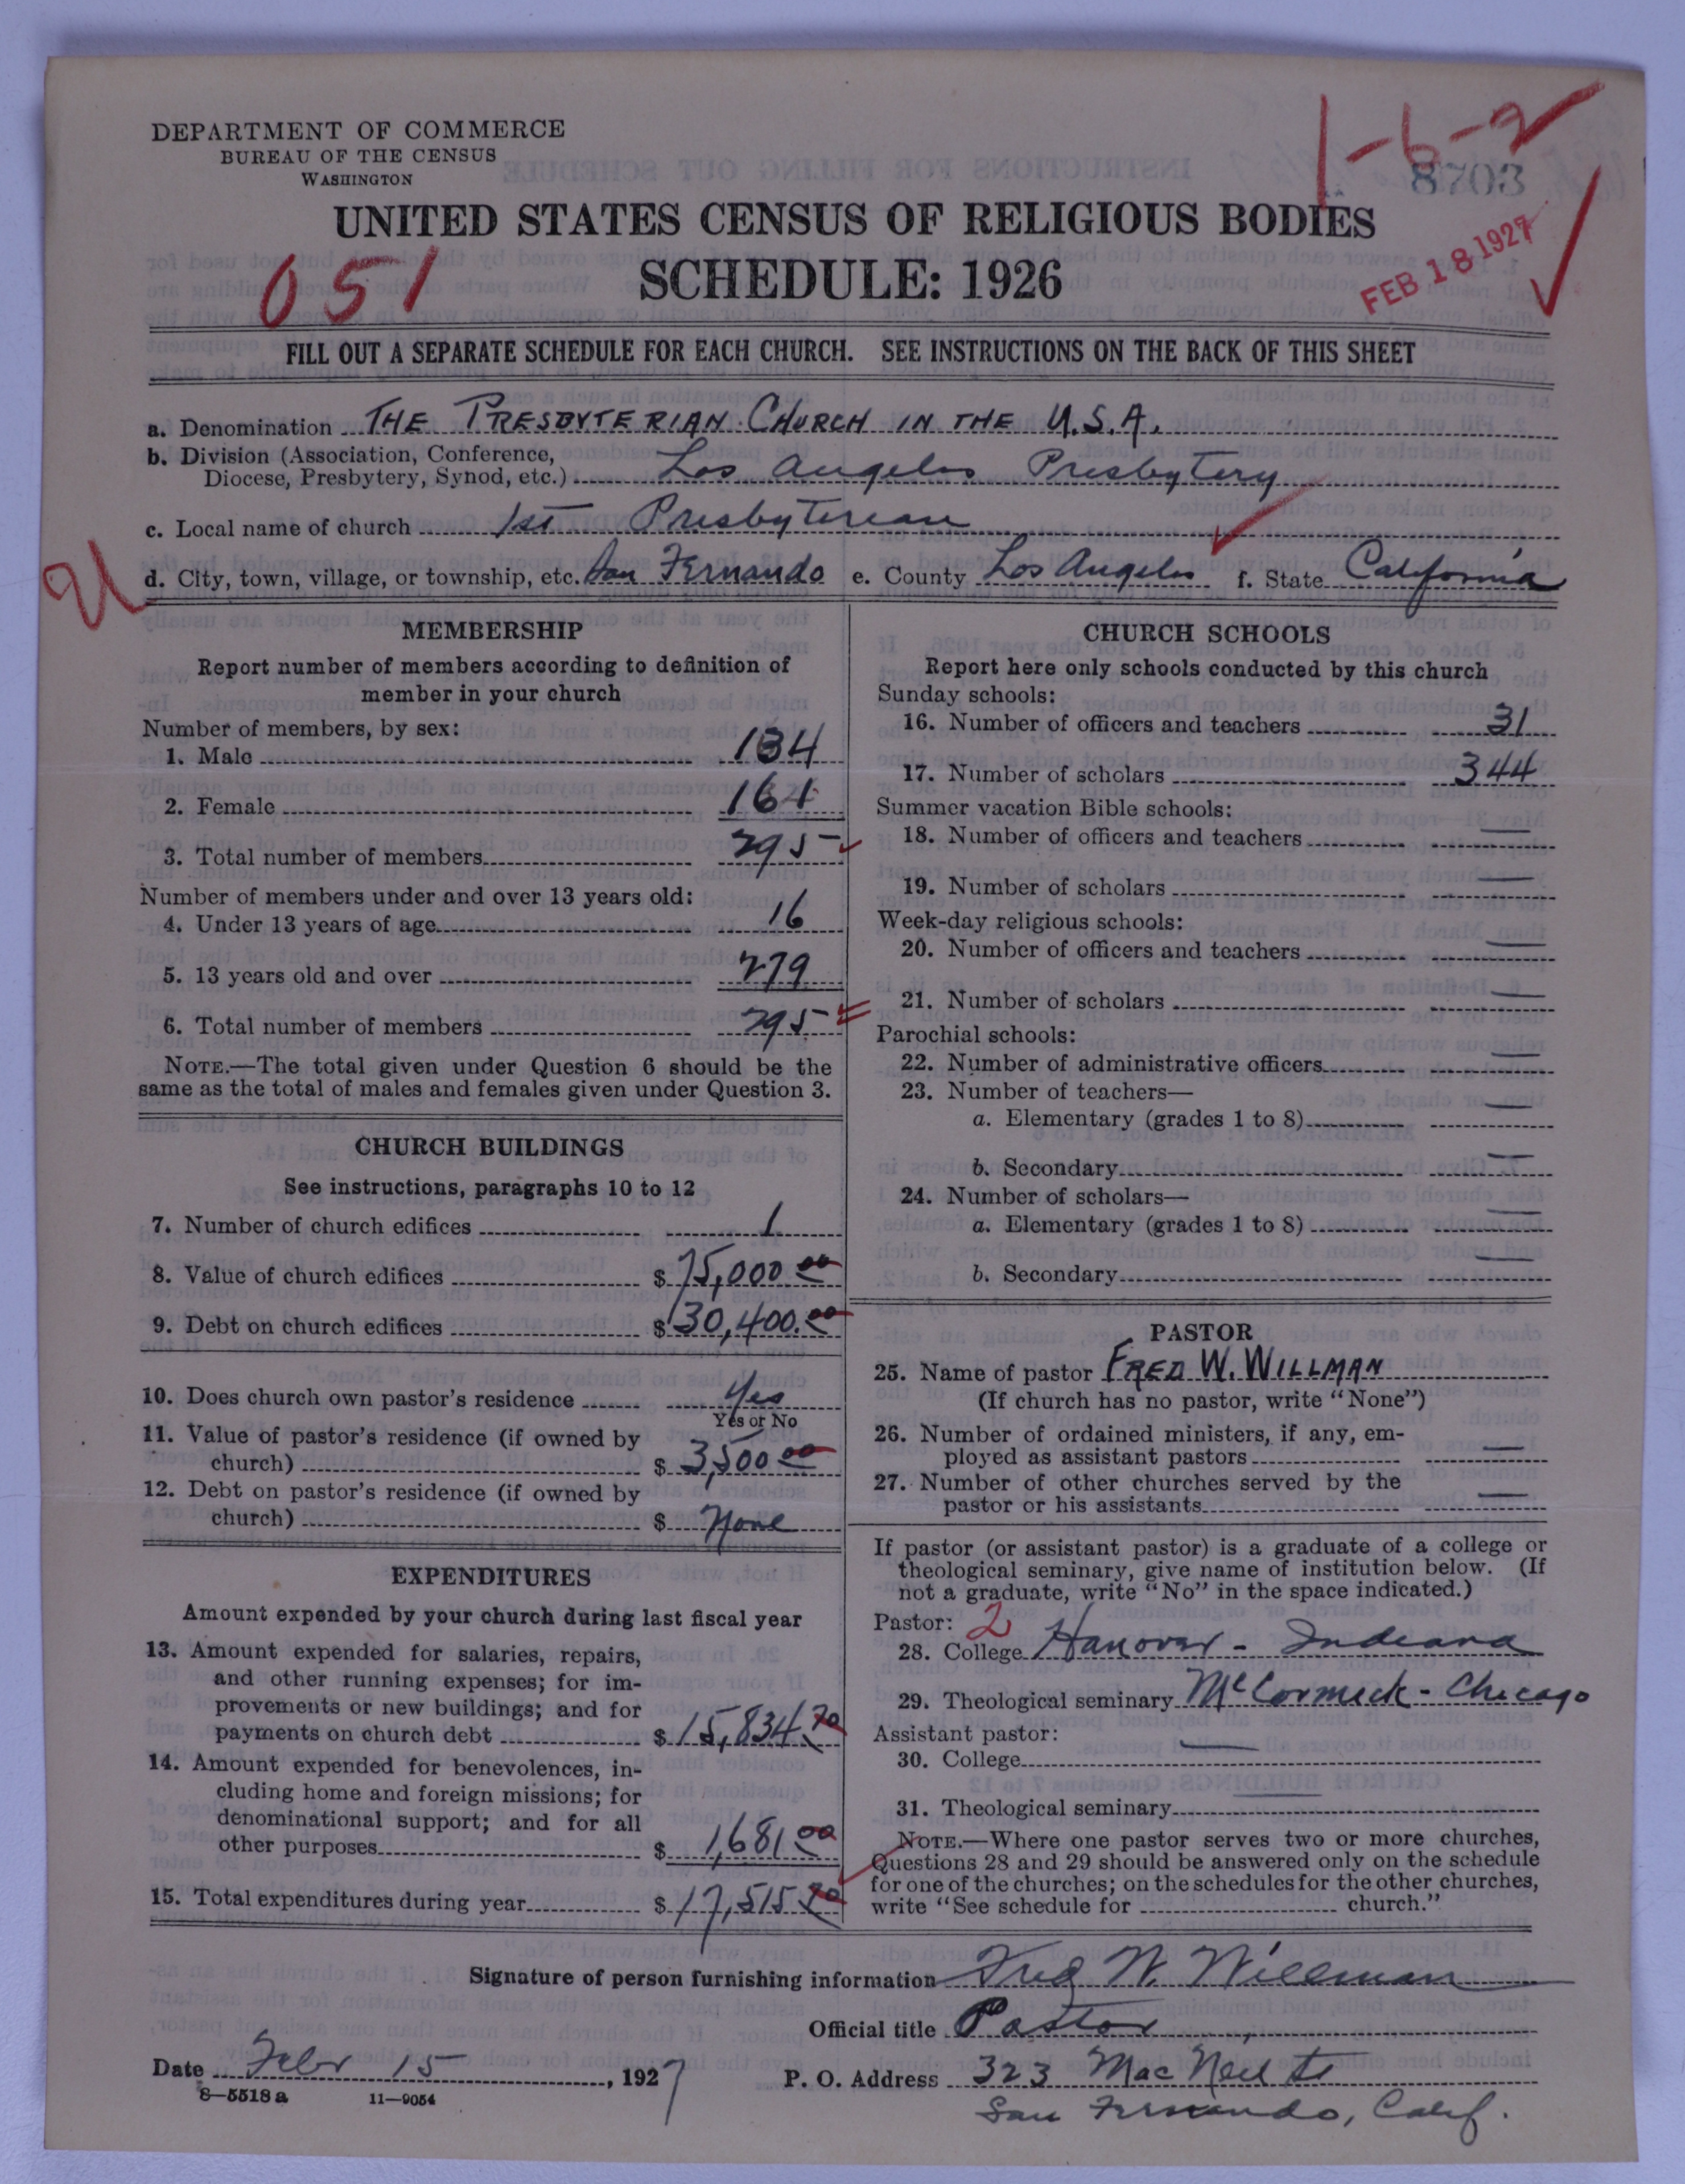 DEPARTMENT OF COMMERCE
BUREAU OF THE CENSUS
WASHINGTON
1-6-2
8703
UNITED STATES CENSUS OF RELIGIOUS BODIES
SCHEDULE: 1926
051
FEB 18 1927
FILL OUT A SEPARATE SCHEDULE FOR EACH CHURCH. SEE INSTRUCTIONS ON THE BACK OF THIS SHEET
a. Denomination THE PRESBYTERIAN CHURCH IN THE U.S.A.
b. Division (Association, Conference,
Diocese, Presbytery, Synod, etc.) Los Angeles Presbytery
c. Local name of church 1st Presbyterian
d. City, town, village, or township, etc. San Fernando e. County Los Angeles f. State California
MEMBERSHIP
Report number of members according to definition of
member in your church
Number of members, by sex:
1. Male 134
2. Female 161
3. Total number of members 295
Number of members under and over 13 years old:
4. Under 13 years of age 16
5. 13 years old and over 279
6. Total number of members 295
NOTE.—The total given under Question 6 should be the
same as the total of males and females given under Question 3.
CHURCH BUILDINGS
See instructions, paragraphs 10 to 12
7. Number of church edifices 1
8. Value of church edifices $ 75,000 00
9. Debt on church edifices $ 30,400.00
10. Does church own pastor's residence Yes
Yes or No
11. Value of pastor's residence (if owned by
church) $ 3,500 00
12. Debt on pastor's residence (if owned by
church) $ None
EXPENDITURES
Amount expended by your church during last fiscal year
13. Amount expended for salaries, repairs,
and other running expenses; for im-
provements or new buildings; and for
payments on church debt $ 15,834 70
14. Amount expended for benevolences, in-
cluding home and foreign missions; for
denominational support; and for all
other purposes $ 1,681 00
15. Total expenditures during year $ 17,515 70
CHURCH SCHOOLS
Report here only schools conducted by this church
Sunday schools:
16. Number of officers and teachers 31
17. Number of scholars 344
Summer vacation Bible schools:
18. Number of officers and teachers —
19. Number of scholars —
Week-day religious schools:
20. Number of officers and teachers —
21. Number of scholars —
Parochial schools:
22. Number of administrative officers —
23. Number of teachers—
a. Elementary (grades 1 to 8) —
b. Secondary —
24. Number of scholars—
a. Elementary (grades 1 to 8) —
b. Secondary —
PASTOR
25. Name of pastor FRED W. WILLMAN
(If church has no pastor, write "None")
26. Number of ordained ministers, if any, em-
ployed as assistant pastors —
27. Number of other churches served by the
pastor or his assistants —
If pastor (or assistant pastor) is a graduate of a college or
theological seminary, give name of institution below. (If
not a graduate, write "No" in the space indicated.)
Pastor: 2
28. College Hanover - Indiana
29. Theological seminary McCormick - Chicago
Assistant pastor: —
30. College
31. Theological seminary
NOTE.—Where one pastor serves two or more churches,
Questions 28 and 29 should be answered only on the schedule
for one of the churches; on the schedules for the other churches,
write "See schedule for church."
Signature of person furnishing information Fred W. Willman
Official title Pastor
Date Febr 15, 1927 P. O. Address 323 MacNeil St
8-5518 a 11-9054
San Fernando, Calif.